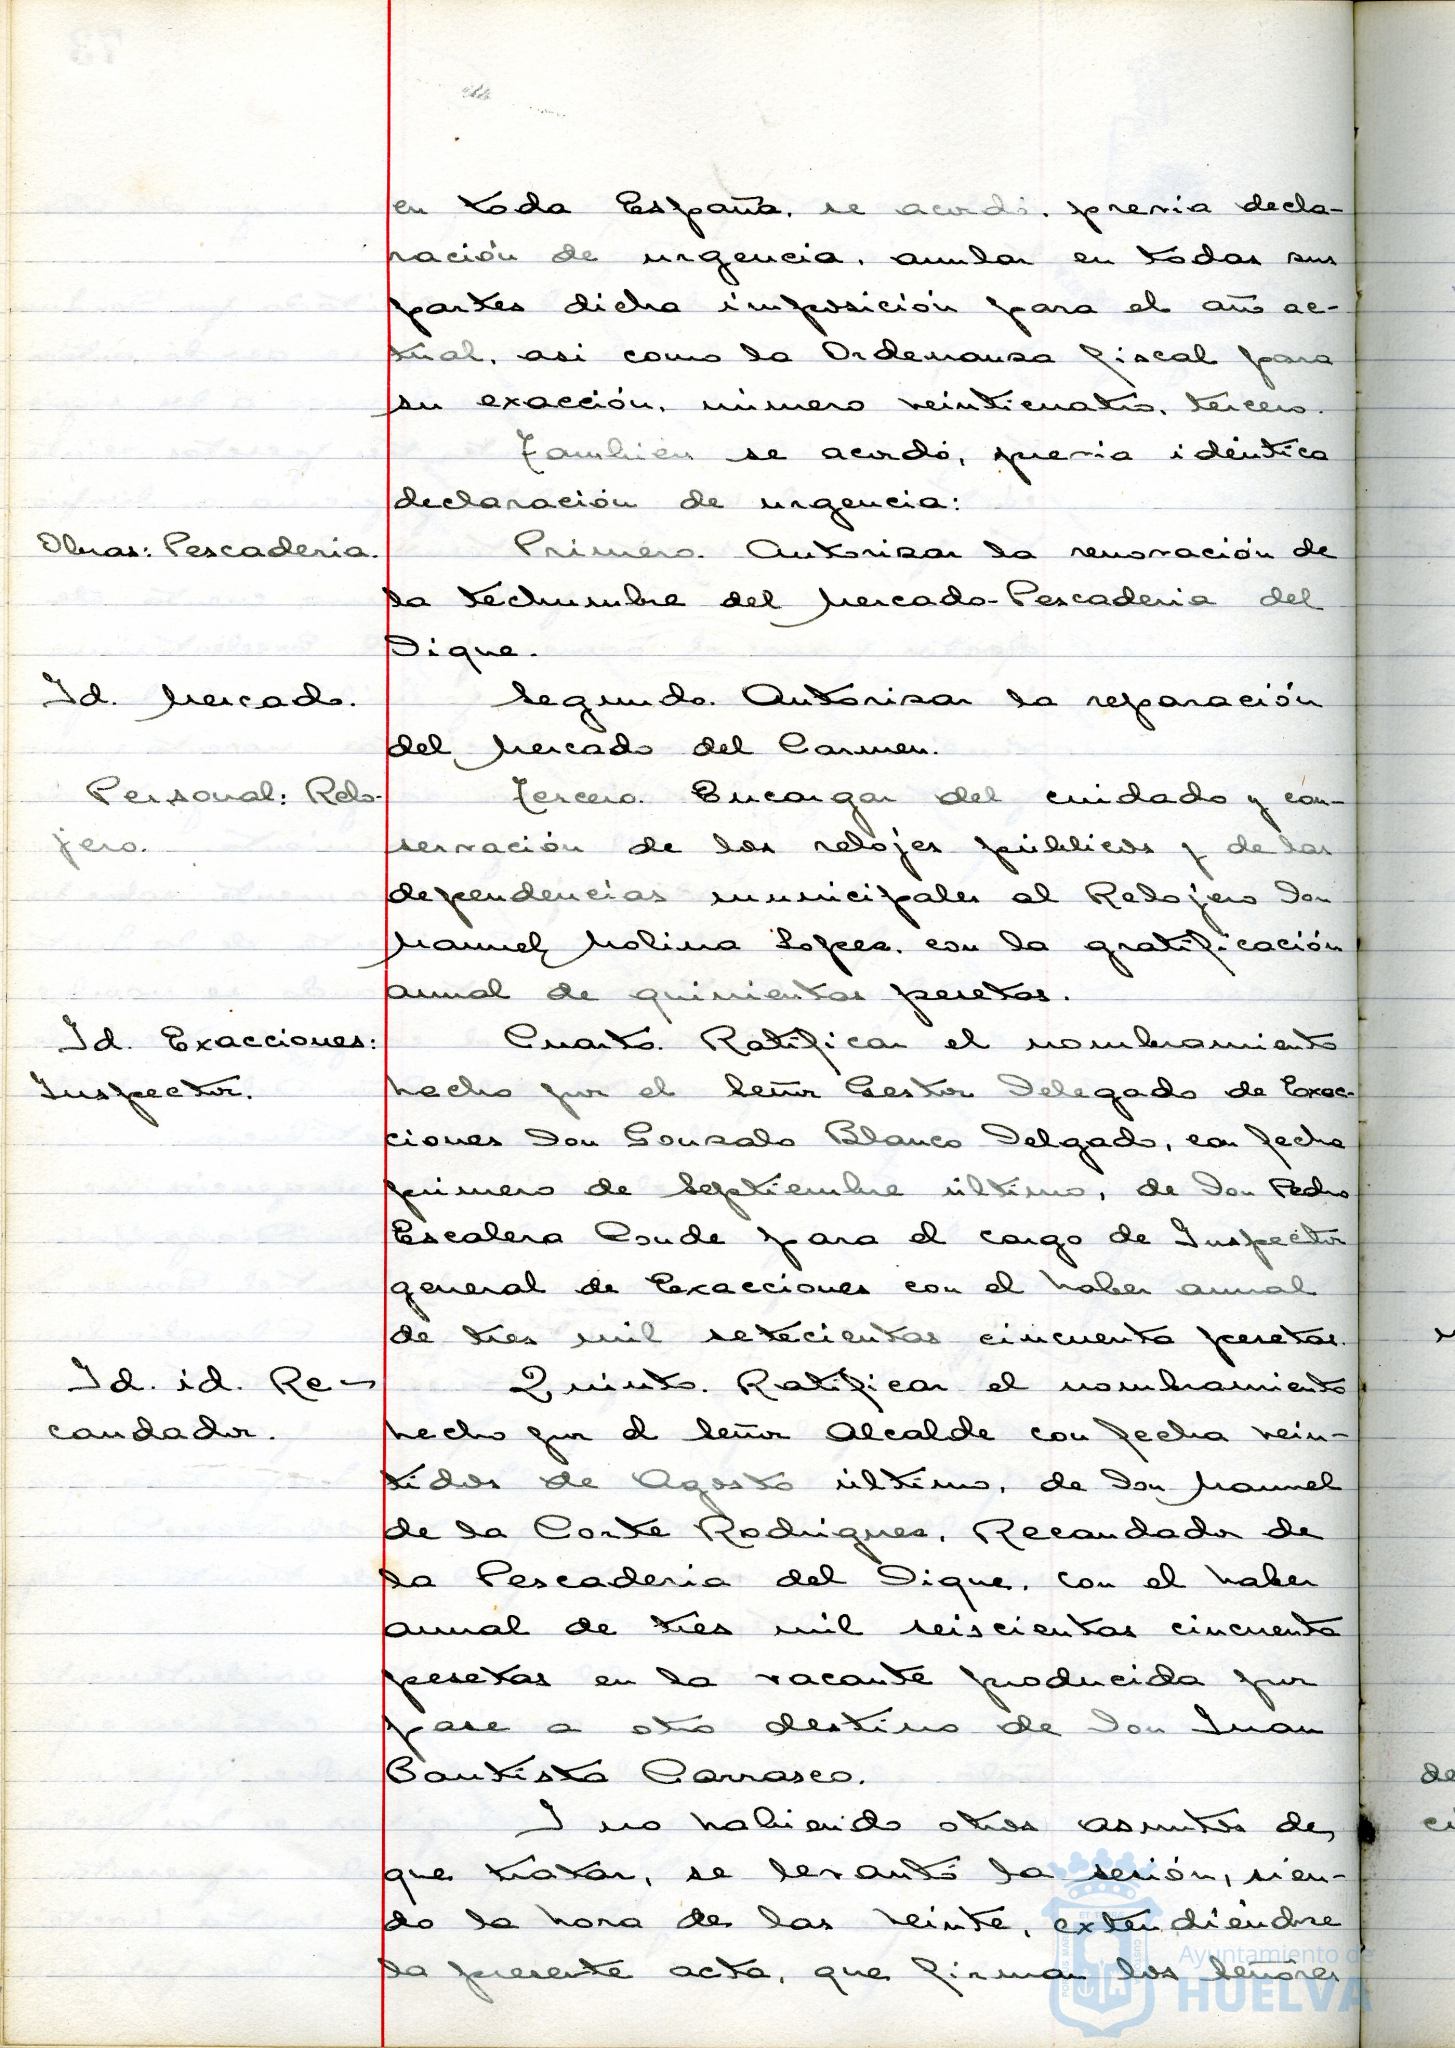 en toda España, se acordó, previa decla-
ración de urgencia, anular en todas sus
partes dicha imposición para el año ac-
tual, asi como la Ordenanza fiscal para
su exacción, número veinticuatro, tercero.
También se acordó, previa idéntica
declaración de urgencia:
Obras: Pescaderia.
Primero. Autorizar la renovación de
la techumbre del Mercado-Pescaderia del
Dique.
Id. Mercado.
Segundo. Autorizar la reparación
del Mercado del Carmen.
Personal: Relo-
jero.
Tercero. Encargar del cuidado y con-
servación de los relojes públicos y de las
dependencias municipales al Relojero Don
Manuel Molina Lopez, con la gratificación
anual de quinientas pesetas.
Id. Exacciones:
Inspector.
Cuarto. Ratificar el nombramiento
hecho por el Señor Gestor Delegado de Exac-
ciones Don Gonzalo Blanco Delgado, con fecha
primero de Septiembre último, de Don Pedro
Escalera Conde para el cargo de Inspector
general de Exacciones con el haber anual
de tres mil setecientas cincuenta pesetas.
Id. id. Re-
caudador.
Quinto. Ratificar el nombramiento
hecho por el Señor Alcalde con fecha vein-
tidos de Agosto último, de Don Manuel
de la Corte Rodriguez, Recaudador de
la Pescaderia del Dique, con el haber
anual de tres mil seiscientas cincuenta
pesetas en la vacante producida por
pase a otro destino de Don Juan
Bautista Carrasco.
I no habiendo otros asuntos de
que tratar, se levantó la sesión, sien-
do la hora de las veinte, extendiéndose
la presente acta, que firman los Señores
Ayuntamiento de
HUELVA